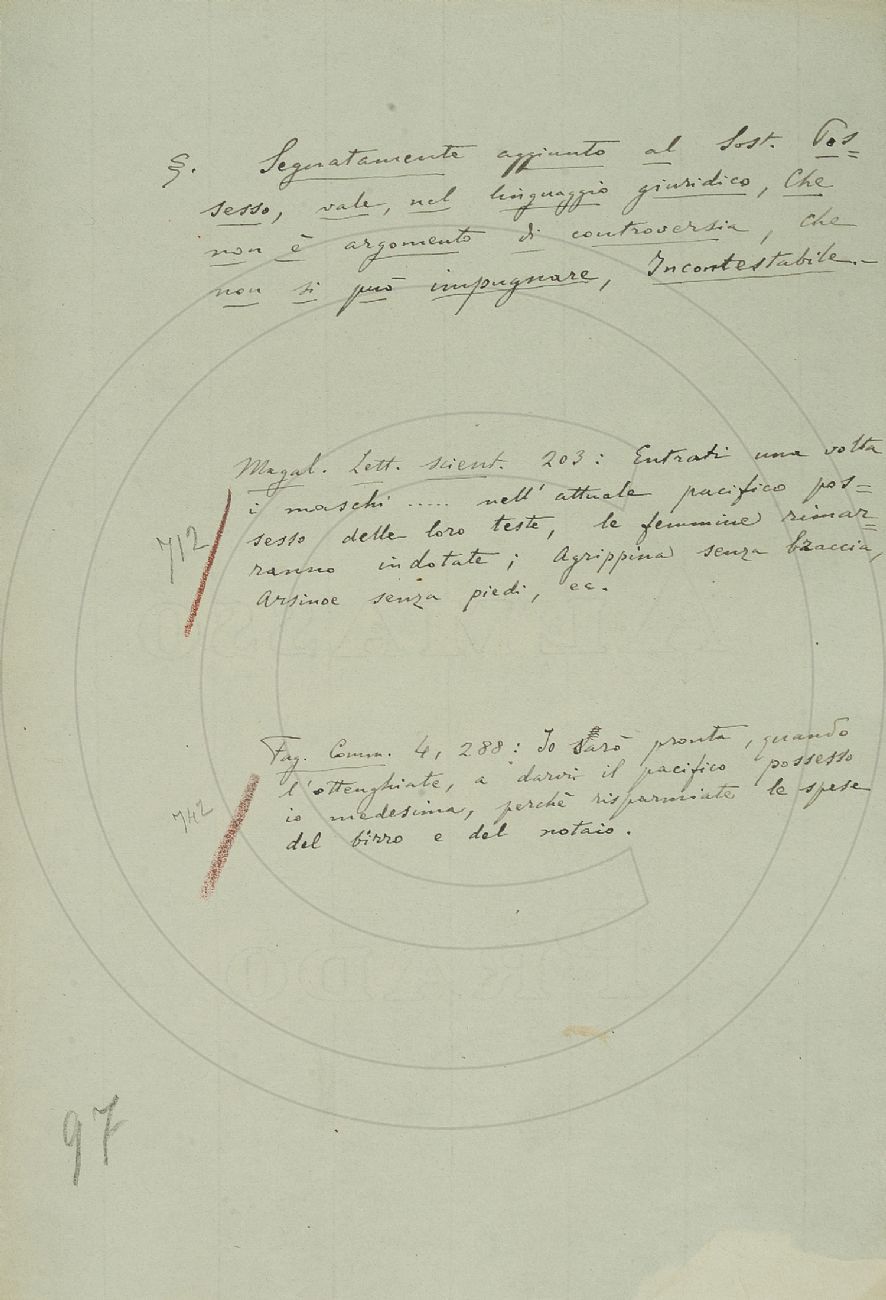 §. Segnatamente aggiunto al Sost. Pos=
sesso, vale, nel linguaggio giuridico, Che
non è argomento di controversia, che
non si può impugnare, Incontestabile.–
Magal. Lett. scient. 203: Entrati una volta
i maschi ..... nell'attuale pacifico pos=
712
sesso delle loro teste, le femmine rimar=
ranno indotate; Agrippina senza braccia,
Arsinoe senza piedi, ec.
Fag. Comm. 4, 288: Io sarò pronta, quando
l'ottenghiate, a darvi il pacifico possesso
742
io medesima, perchè risparmiate le spese
del birro e del notaio.
97